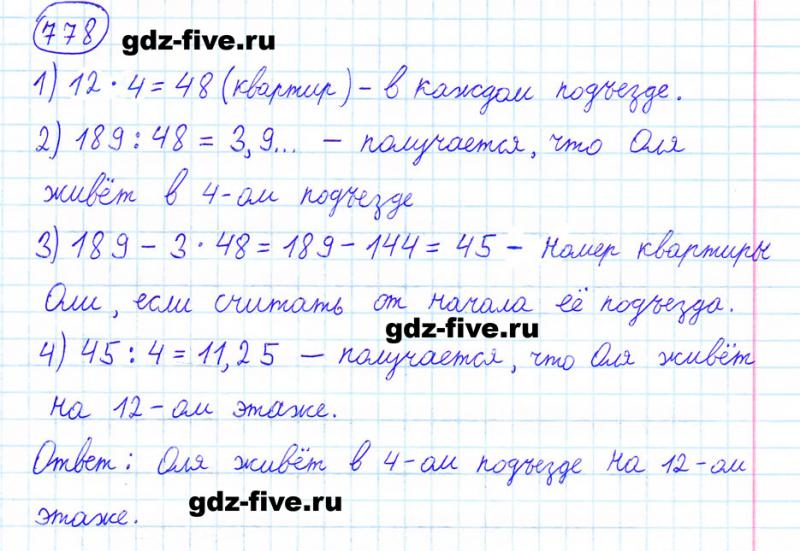 778 gdz-five.ru
1) 12 · 4 = 48 (квартир) – в каждом подъезде.
2) 189 : 48 = 3,9... – получается, что Оля
живёт в 4-ом подъезде
3) 189 – 3 · 48 = 189 – 144 = 45 – номер квартиры
Оли, если считать от начала её подъезда.
gdz-five.ru
4) 45 : 4 = 11,25 – получается, что Оля живёт
на 12-ом этаже.
Ответ: Оля живёт в 4-ом подъезде на 12-ом
gdz-five.ru
этаже.